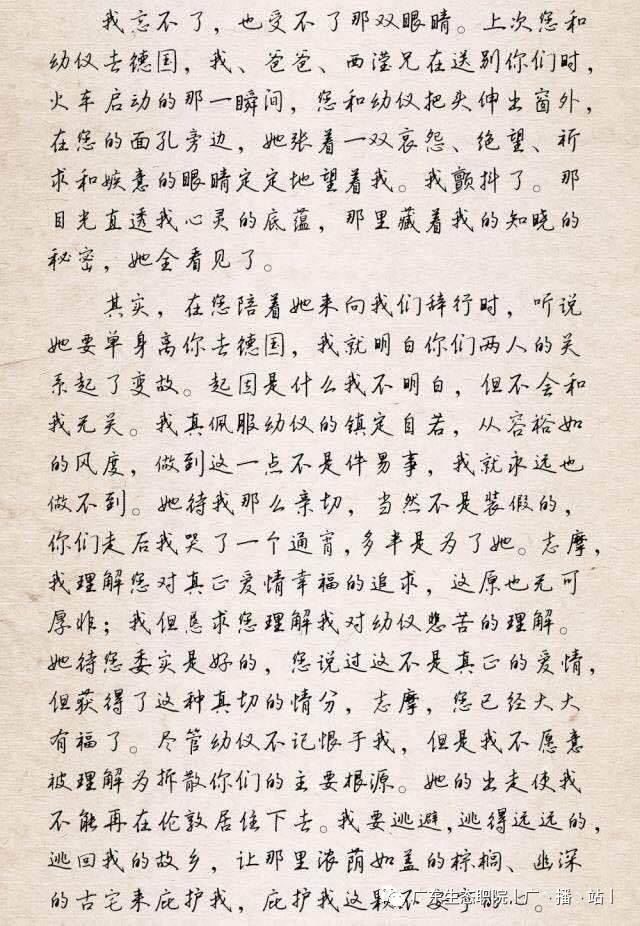 我忘不了，也受不了那双眼睛。上次您和
幼仪去德国，我、爸爸、西滢兄在送别你们时，
火车启动的那一瞬间，您和幼仪把头伸出窗外，
在您的面孔旁边，她张着一双哀怨、绝望、祈
求和嫉意的眼睛定定地望着我。我颤抖了。那
目光直透我心灵的底蕴，那里藏着我的知晓的
秘密，她全看见了。
其实，在您陪着她来向我们辞行时，听说
她要单身离你去德国，我就明白你们两人的关
系起了变故。起因是什么我不明白，但不会和
我无关。我真佩服幼仪的镇定自若，从容裕如
的风度，做到这一点不是件易事，我就永远也
做不到。她待我那么亲切，当然不是装假的，
你们走后我哭了一个通宵，多半是为了她。志摩，
我理解您对真正爱情幸福的追求，这原也无可
厚非；我但恳求您理解我对幼仪悲苦的理解。
她待您委实是好的，您说过这不是真正的爱情，
但获得了这种真切的情分，志摩，您已经大大
有福了。尽管幼仪不记恨于我，但是我不愿意
被理解为拆散你们的主要根源。她的出走使我
不能再在伦敦居住下去。我要逃避，逃得远远的，
逃回我的故乡，让那里浓荫如盖的棕榈、幽深
的古宅来庇护我，庇护我这颗不安宁的心。
广东生态职院|广·播·站|